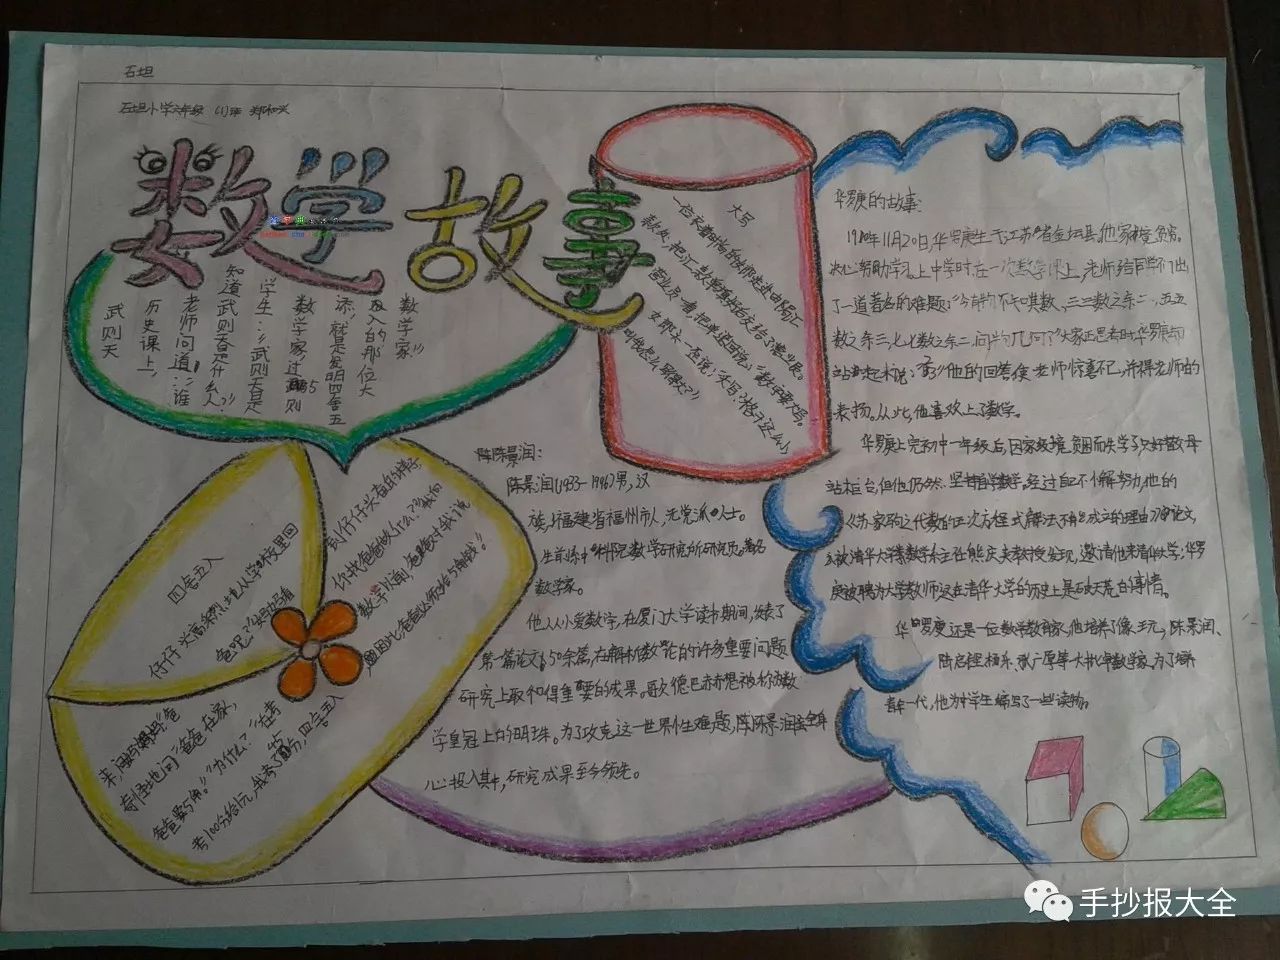 石坦
石坦小学六年级 (1)班 郑和兴
数学故事
武则天
历史课上，
老师问道：“谁
知道武则天是什么人？”
学生：“武则天是
数学家，过
添，就是发明四舍五
及入的那位大
数学家”
大写
营业员一看，把单退回说：“数字要大写。”
四舍五入
仔仔兴高采烈地从学校里回
来，
奇怪地问：“爸爸在家，
爸爸要5角。”“为什么？”“在考
考100分给1元，我考了
分，四舍五入
到仔仔兴奋的样子
你找爸爸做什么？”“我向
爸爸对我说
陈景润：
陈景润(1933-1996)男，汉
族，福建省福州市人，无党派人士。
生前系中科院数学研究所研究员。著名
数学家。
他从小爱数学，在厦门大学读书期间，
第一篇论文，50余篇，在解析数论的许多重要问题
研究上取得重要的成果。哥德巴赫猜想被称为数
学皇冠上的明珠。为了攻克这一世界性难题，陈景润全身
心投入其中，研究成果至今领先。
华罗庚的故事：
1910年11月20日，华罗庚生于江苏省金坛县，他家被贫穷。
决心努力学习上中学时，在一次数学课上，老师给同学们出
了一道著名的难题：“今有物不知其数，三三数之余二，五五
数之余三，七七数之余二，问物几何？”大家正思考时，华罗庚
站起来说：“23”他的回答使老师惊喜不已，并得老师的
表扬。从此，他喜欢上了数学。
华罗庚上完初中一年级后，因家境贫困而失学了，只好替父母
站柜台，但他仍然坚持自学数学。经过自己不懈努力，他的
《苏家驹之代数的五次方程式解法不能成立的理由》论文，
被清华大学数学系主任熊庆来教授发现，邀请他来清华大学；华罗
庚被聘为大学教师，这在清华大学的历史上是破天荒的事情。
华罗庚还是一位数学教育家，他培养了像王元，陈景润、
陆启铿、杨乐、张广厚等大批卓数学家，为了培养
青年一代，他为中学生编写了一些读物。
手抄报大全